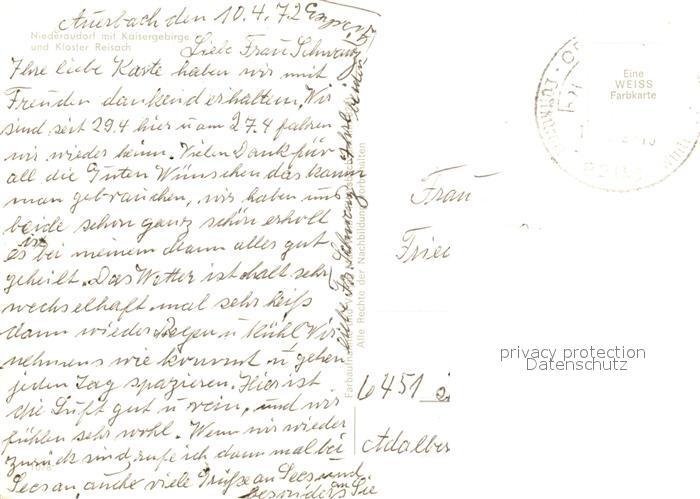 Auerbach den 10.4.72
Niederaudorf mit Kaisergebirge
und Kloster Reisach
Liebe Frau Schwanz
Ihre liebe Karte haben wir mit
Freuden dankend erhalten. Wir
sind seit 29.4 hier u am 27.4 fahren
wir wieder heim. Vielen Dank für
all die Guten Wünschen das kann
man gebrauchen, wir haben uns
beide schon ganz schön erholt
ist
es bei meinem Mann alles gut
geheilt. Das Wetter ist halt sehr
wechselhaft mal sehr heiß
dann wieder Regen u Kühl Wir
nehmens wie kommt u gehen
jeden Tag spazieren. Hier ist
die Luft gut u rein, und wir
fühlen sehr wohl. Wenn wir wieder
zurück sind, rufe ich dann mal bei
an, auch viele Grüße an und
besonders an Sie
Alle Rechte der Nachbildung vorbehalten
Eine
WEISS
Farbkarte
Frau
Fried
6451
Adalber
privacy protection
Datenschutz